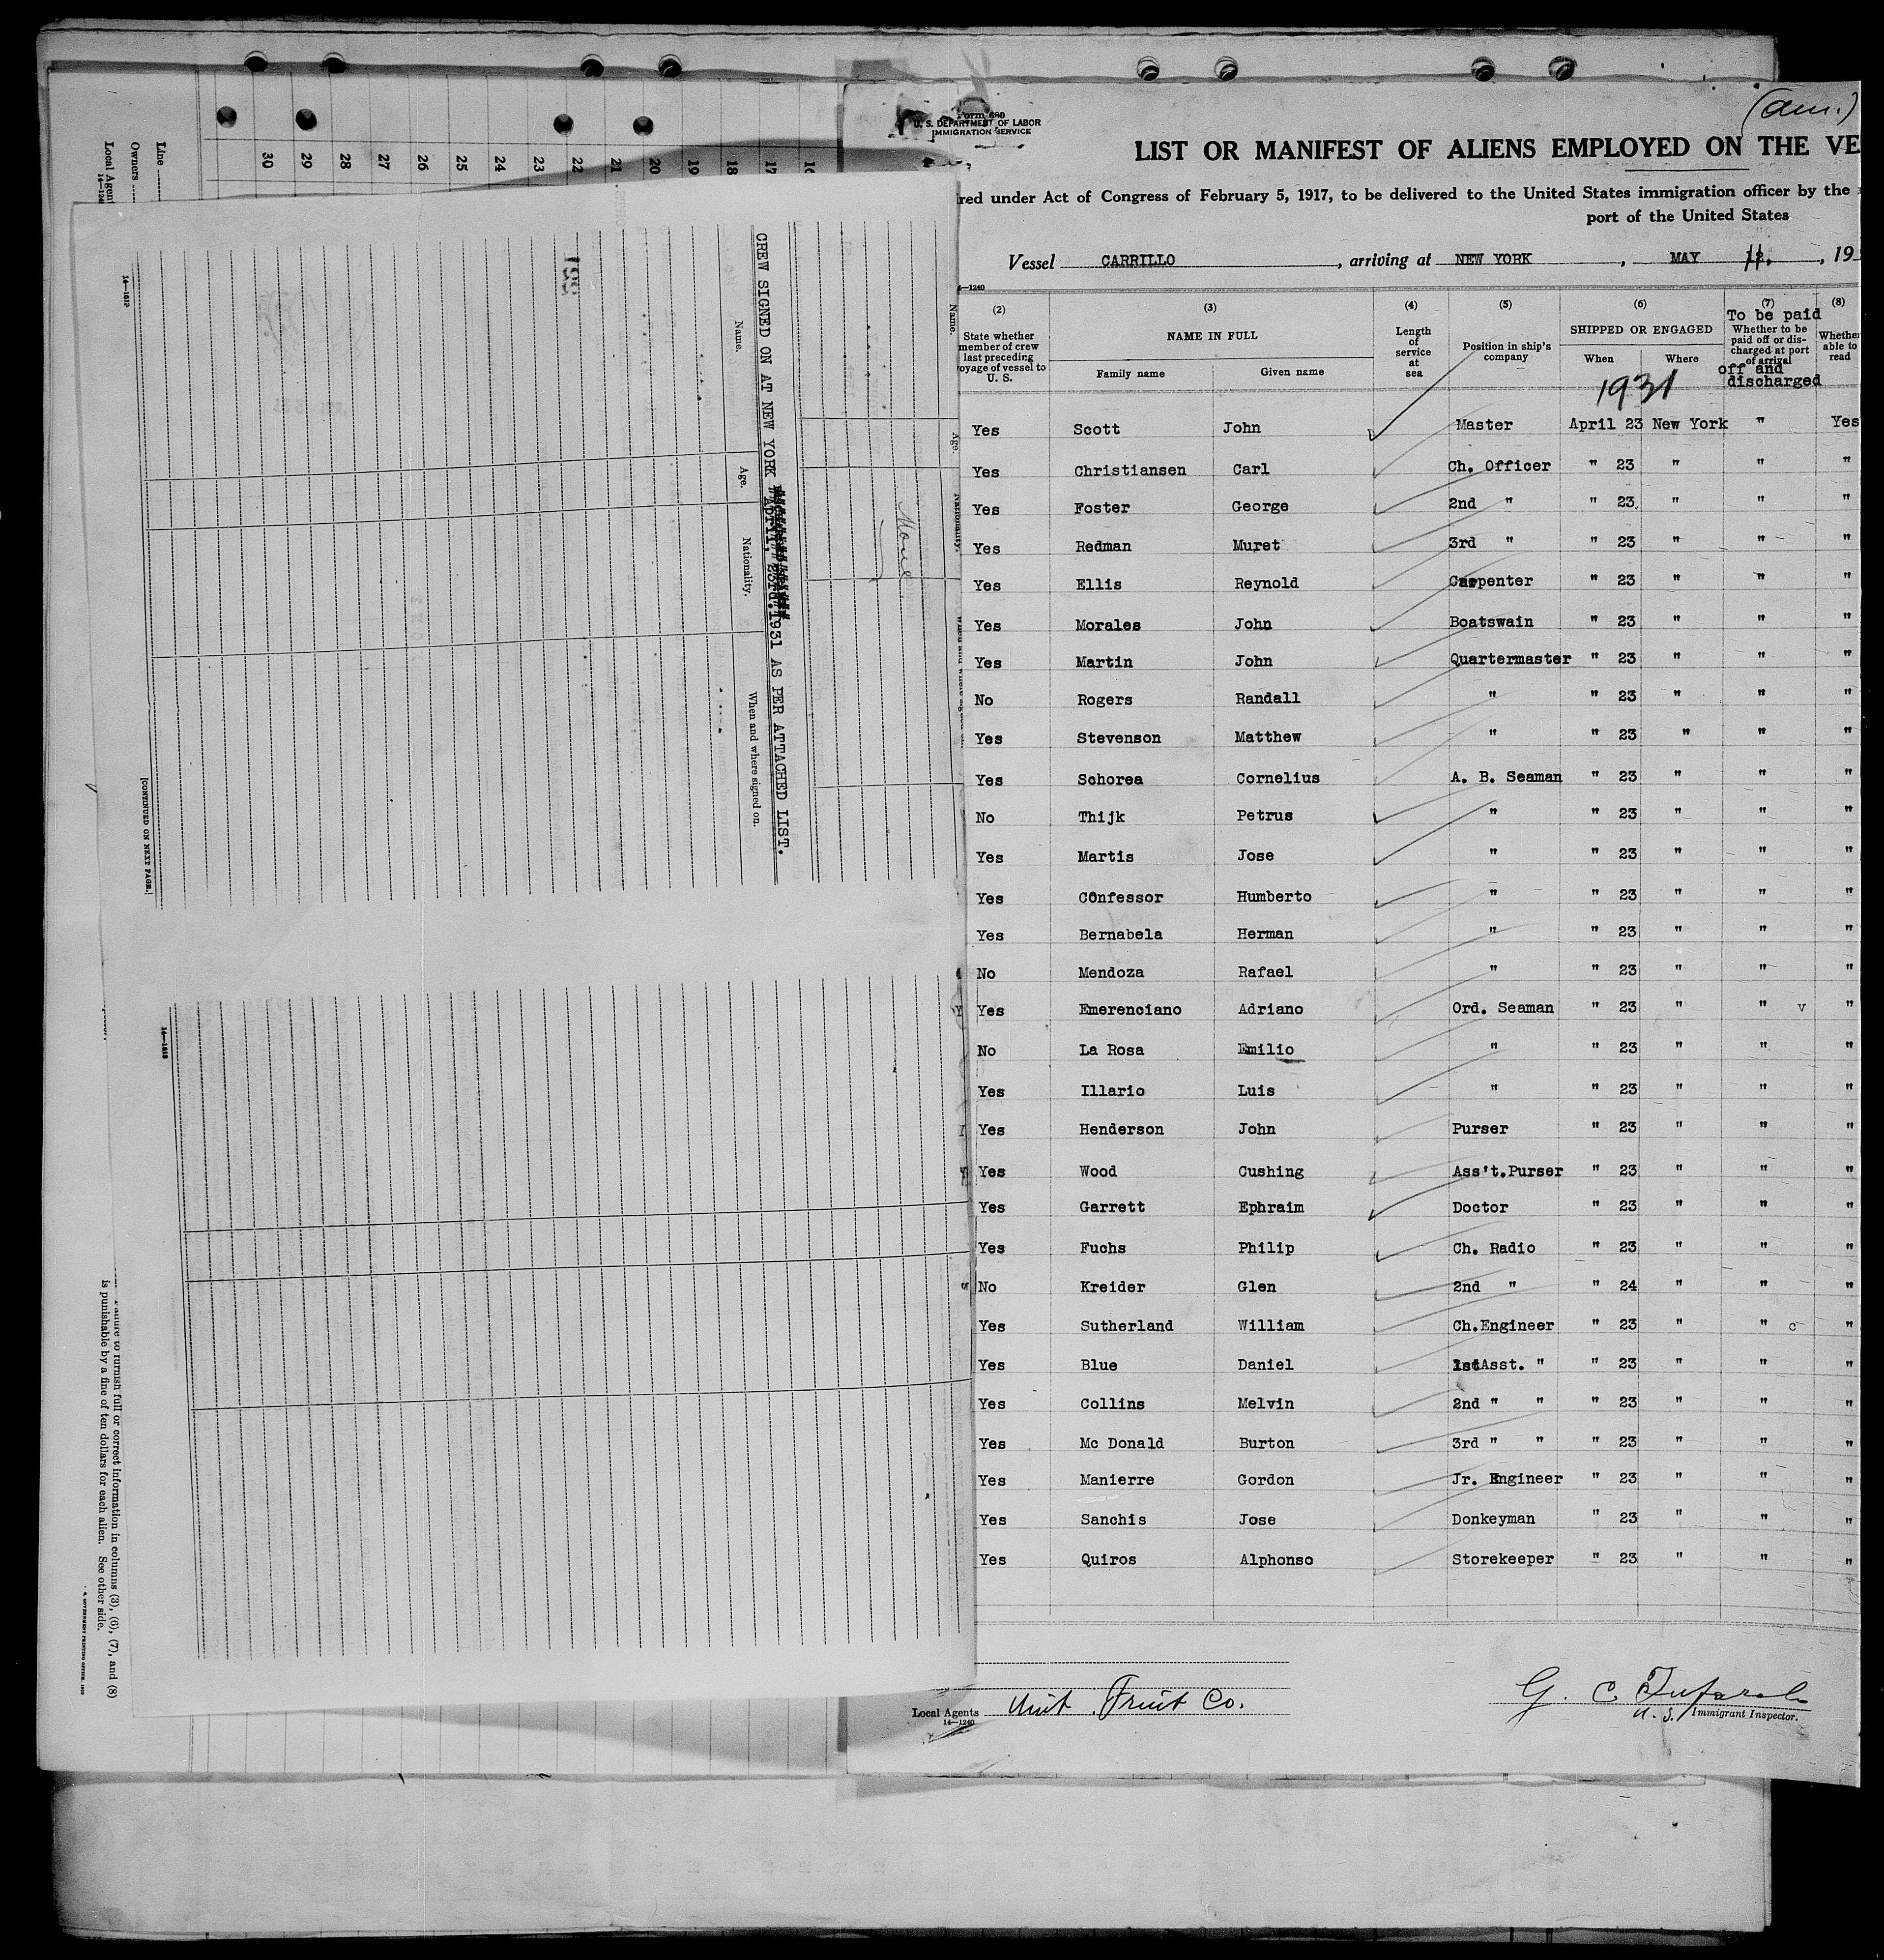 Line
Owners
Local Agent
14—1240
30 29 28 27 26 25 24 23 22 21 20 19 18 17 16
14—1612
[CONTINUED ON NEXT PAGE.]
CREW SIGNED ON AT NEW YORK April, 23rd.1931 AS PER ATTACHED LIST.
Name. Age. Nationality. When and where signed on.
Name. Age. Nationality.
14—1613
Failure to furnish full or correct information in columns (3), (6), (7), and (8)
is punishable by a fine of ten dollars for each alien. See other side.
GOVERNMENT PRINTING OFFICE
(am.)
Form 680
U. S. DEPARTMENT OF LABOR
IMMIGRATION SERVICE
LIST OR MANIFEST OF ALIENS EMPLOYED ON THE VE
red under Act of Congress of February 5, 1917, to be delivered to the United States immigration officer by the
port of the United States
Vessel CARRILLO, arriving at NEW YORK, MAY , 19
—1240
(2) (3) (4) (5) (6) (7) (8)
State whether member of crew last preceding oyage of vessel to U. S.
NAME IN FULL
Family name Given name
Length of service at sea
Position in ship's company
SHIPPED OR ENGAGED
When Where
1931
To be paid
Whether to be paid off or discharged at port of arrival
off and discharged
Whether able to read
Yes Scott John Master April 23 New York " Yes
Yes Christiansen Carl Ch. Officer " 23 " " "
Yes Foster George 2nd " " 23 " " "
Yes Redman Muret 3rd " " 23 " " "
Yes Ellis Reynold Carpenter " 23 " " "
Yes Morales John Boatswain " 23 " " "
Yes Martin John Quartermaster " 23 " " "
No Rogers Randall " " 23 " " "
Yes Stevenson Matthew " " 23 " " "
Yes Schorea Cornelius A. B. Seaman " 23 " " "
No Thijk Petrus " " 23 " " "
Yes Martis Jose " " 23 " " "
Yes COnfessor Humberto " " 23 " " "
Yes Bernabela Herman " " 23 " " "
No Mendoza Rafael " " 23 " " "
Yes Emerenciano Adriano Ord. Seaman " 23 " " v "
No La Rosa Emilio " " 23 " " "
Yes Illario Luis " " 23 " " "
Yes Henderson John Purser " 23 " " "
Yes Wood Cushing Ass't.Purser " 23 " " "
Yes Garrett Ephraim Doctor " 23 " " "
Yes Fuchs Philip Ch. Radio " 23 " " "
No Kreider Glen 2nd " " 24 " " "
Yes Sutherland William Ch.Engineer " 23 " " c "
Yes Blue Daniel 1stAsst. " " 23 " " "
Yes Collins Melvin 2nd " " " 23 " " "
Yes Mc Donald Burton 3rd " " " 23 " " "
Yes Manierre Gordon Jr. Engineer " 23 " " "
Yes Sanchis Jose Donkeyman " 23 " " "
Yes Quiros Alphonso Storekeeper " 23 " " "
Local Agents Unit Fruit Co.
14—1240
G. C.
U. S. Immigrant Inspector.